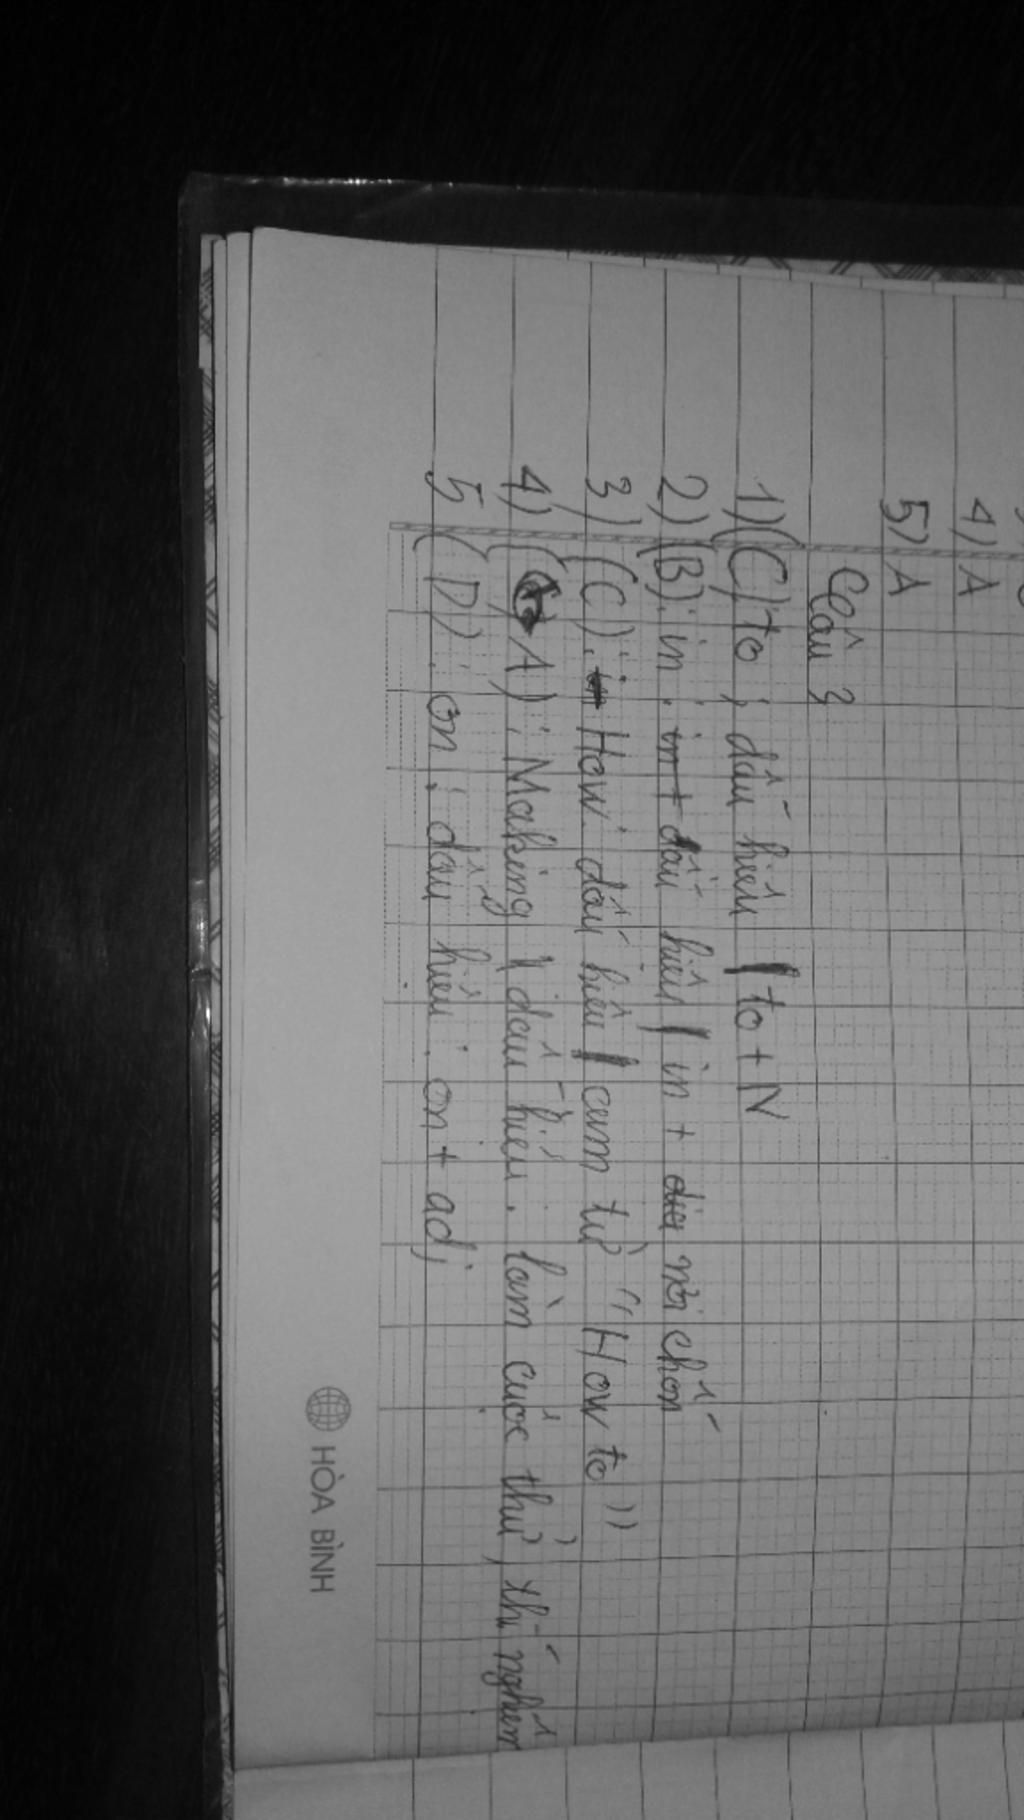 4) A
5) A
Câu 3
1) (C) to ; dấu hiệu to + N
2) (B): in : in + dấu hiệu in + nơi chốn
3) (C): How : dấu hiệu cụm từ "How to"
4) (A): Making dấu hiệu : làm cuộc thử, thí nghiệm
5 (D) : on : dấu hiệu : on + adj
HÒA BÌNH